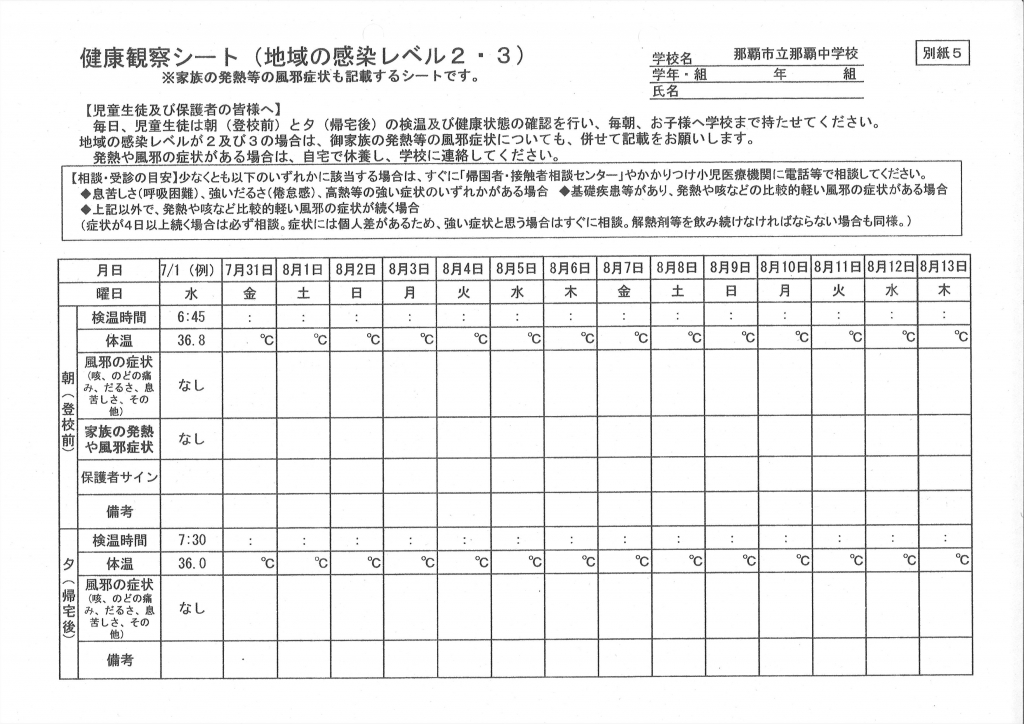 健康観察シート（地域の感染レベル２・３）
※家族の発熱等の風邪症状も記載するシートです。
学校名 那覇市立那覇中学校
学年・組 年 組
氏名
別紙５
【児童生徒及び保護者の皆様へ】
毎日、児童生徒は朝（登校前）と夕（帰宅後）の検温及び健康状態の確認を行い、毎朝、お子様へ学校まで持たせてください。
地域の感染レベルが２及び３の場合は、御家族の発熱等の風邪症状についても、併せて記載をお願いします。
発熱や風邪の症状がある場合は、自宅で休養し、学校に連絡してください。
【相談・受診の目安】少なくとも以下のいずれかに該当する場合は、すぐに「帰国者・接触者相談センター」やかかりつけ小児医療機関に電話等で相談してください。
◆息苦しさ（呼吸困難）、強いだるさ（倦怠感）、高熱等の強い症状のいずれかがある場合 ◆基礎疾患等があり、発熱や咳などの比較的軽い風邪の症状がある場合
◆上記以外で、発熱や咳など比較的軽い風邪の症状が続く場合
（症状が４日以上続く場合は必ず相談。症状には個人差があるため、強い症状と思う場合はすぐに相談。解熱剤等を飲み続けなければならない場合も同様。）
月日 7/1（例） 7月31日 8月1日 8月2日 8月3日 8月4日 8月5日 8月6日 8月7日 8月8日 8月9日 8月10日 8月11日 8月12日 8月13日
曜日 水 金 土 日 月 火 水 木 金 土 日 月 火 水 木
朝（登校前）
検温時間 6:45 : : : : : : : : : : : : : :
体温 36.8 ℃ ℃ ℃ ℃ ℃ ℃ ℃ ℃ ℃ ℃ ℃ ℃ ℃ ℃
風邪の症状
（咳、のどの痛
み、だるさ、息
苦しさ、その
他）
なし
家族の発熱
や風邪症状
なし
保護者サイン
備考
夕（帰宅後）
検温時間 7:30 : : : : : : : : : : : : : :
体温 36.0 ℃ ℃ ℃ ℃ ℃ ℃ ℃ ℃ ℃ ℃ ℃ ℃ ℃ ℃
風邪の症状
（咳、のどの痛
み、だるさ、息
苦しさ、その
他）
なし
備考